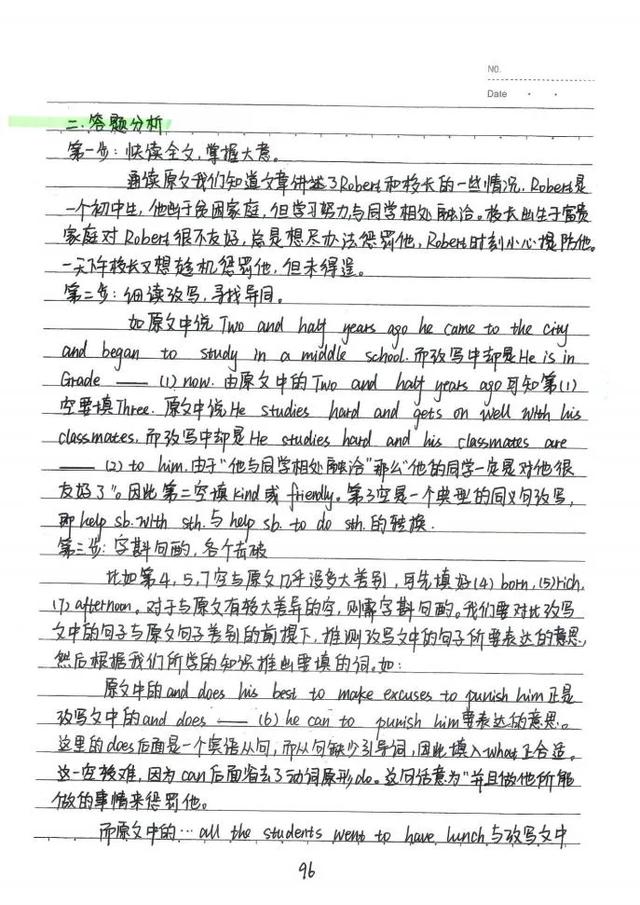 NO.
Date
二.答题分析
第一步:快读全文,掌握大意。
通读原文我们知道文章讲述了Robert和校长的一些情况.Robert是
一个初中生,他出于贫困家庭,但学习努力与同学相处融洽。校长出生于富贵
家庭对Robert很不友好,总是想尽办法惩罚他,Robert时刻小心提防他。
一天下午校长又想趁机惩罚他,但未得逞。
第二步:细读改写,寻找异同。
如原文中说Two and half years ago he came to the city
and began to study in a middle school.而改写中却是He is in
Grade —— (1) now. 由原文中的Two and half years ago可知第(1)
空要填Three. 原文中说He studies hard and gets on well with his
classmates,而改写中却是He studies hard and his classmates are
—— (2) to him.由于"他与同学相处融洽"那么"他的同学一定是对他很
友好了"。因此第二空填kind或friendly。第3空是一个典型的同义句改写,
即help sb. with sth.与help sb. to do sth.的转换.
第三步:字斟句酌,各个击破
比如第4,5,7空与原文几乎没多大差别,可先填好(4) born,(5)rich,
(7) afternoon。对于与原文有较大差异的空,则需字斟句酌。我们要对比改写
文中的句子与原文句子差别的前提下,推测改写文中的句子所要表达的意思,
然后根据我们所学的知识推出要填的词.如:
原文中的and does his best to make excuses to punish him正是
改写文中的and does —— (6) he can to punish him要表达的意思。
这里的does后面是一个宾语从句,而从句缺少引导词,因此填入what正合适。
这一空较难,因为can后面省去了动词原形do。这句话意为"并且做他所能
做的事情来惩罚他。
而原文中的…all the students went to have lunch与改写文中
96